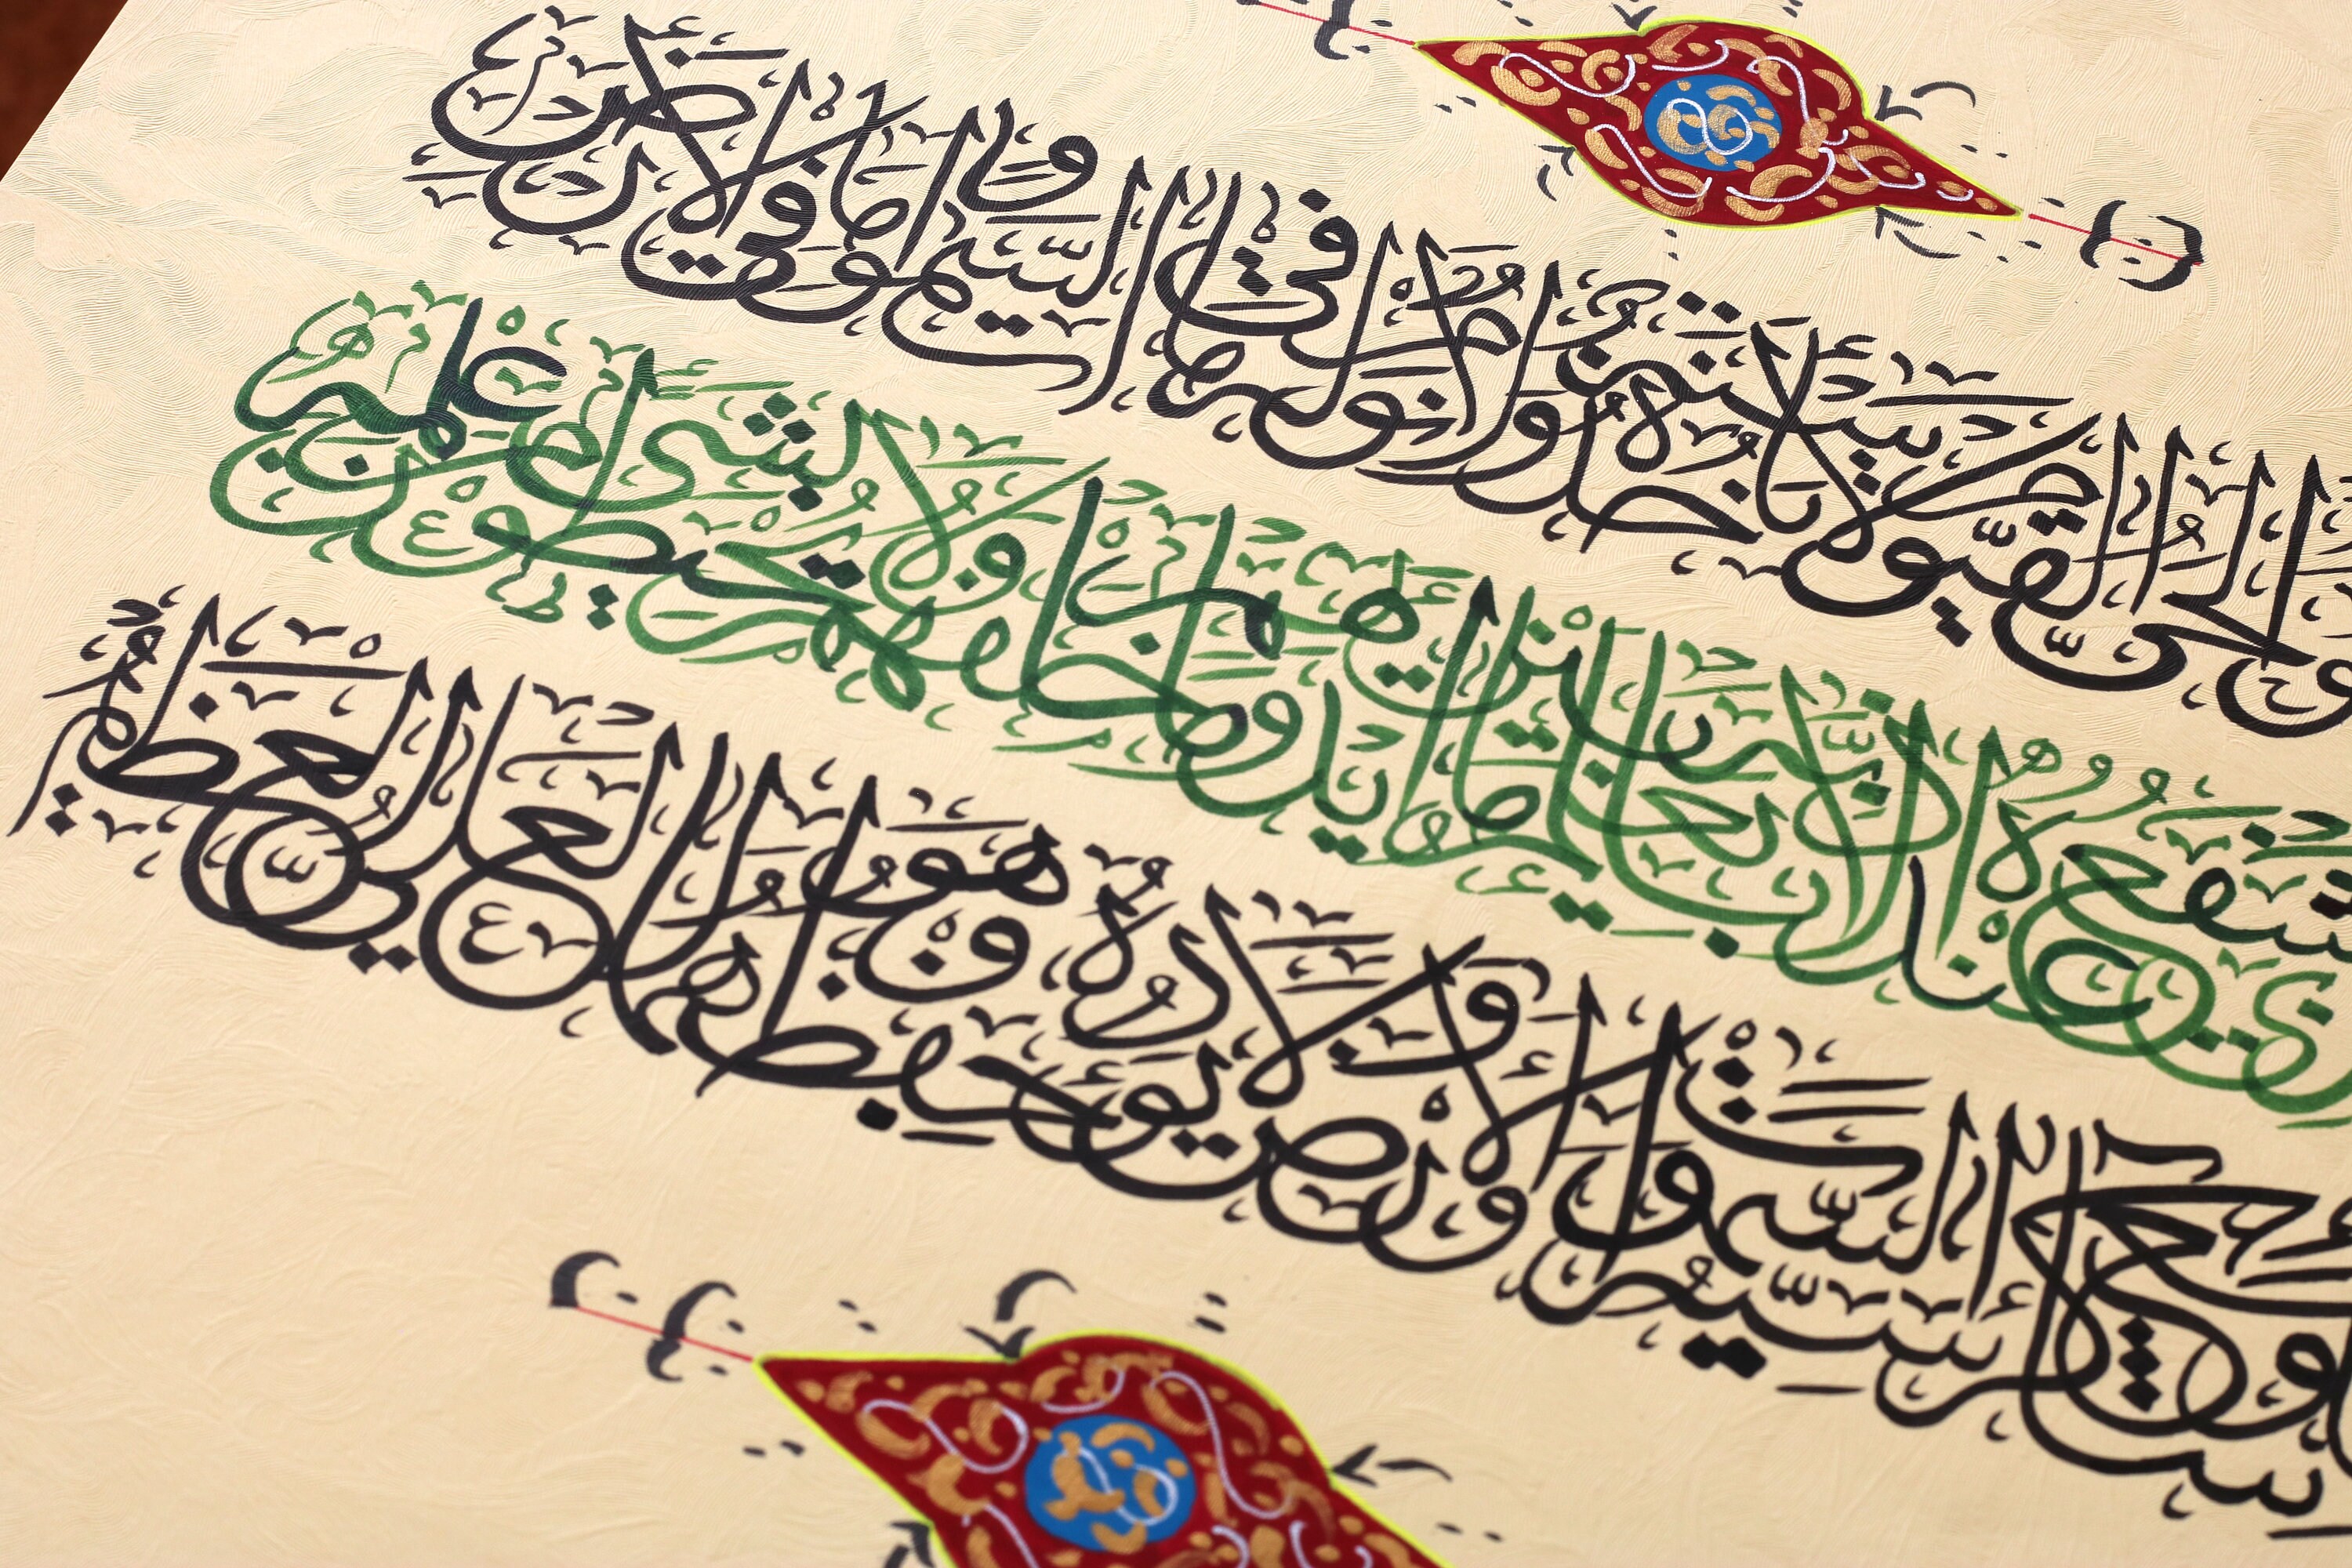 الحي القيوم لا تأخذه سنة ولا نوم له ما في السموت وما في الأرض من
يشفع عنده إلا بإذنه يعلم ما بين أيديهم وما خلفهم ولا يحيطون بشيء من علمه
وسع كرسيه السموت والأرض ولا يؤده حفظهما وهو العلي العظيم